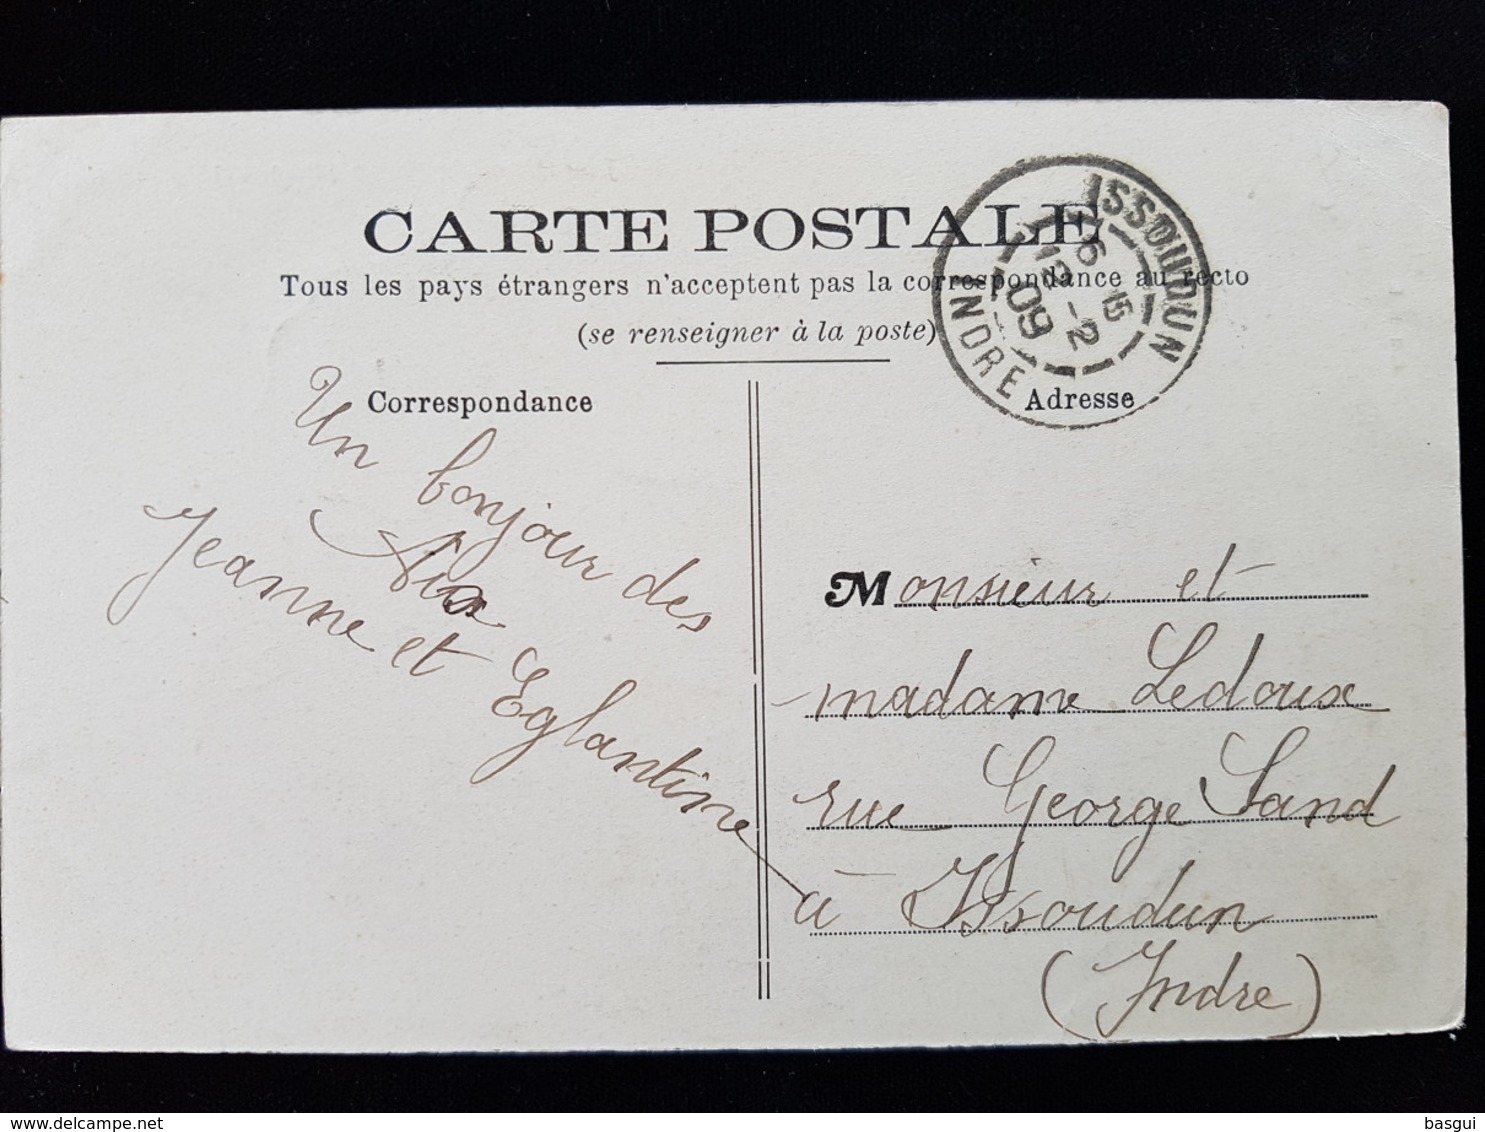 CARTE POSTALE
Tous les pays étrangers n'acceptent pas la correspondance au recto
(se renseigner à la poste)
ISSOUDUN
INDRE
6
15
12 - 2
09
Correspondance
Adresse
Un bonjour des
Jeanne et Eglantine
Monsieur et
madame Ledoux
rue George Sand
à Issoudun
(Indre)
delcampe.net
basgui